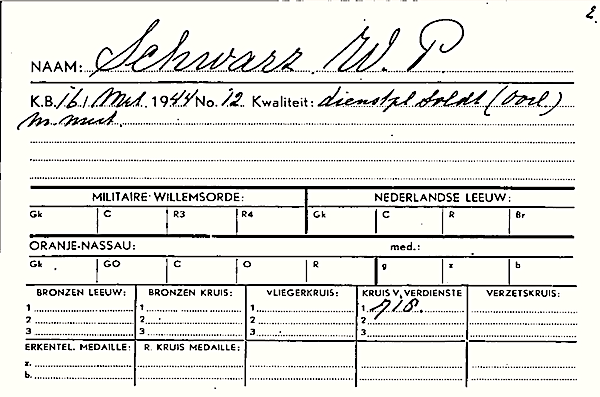 E.
NAAM: Schwarz W. P
K.B. 16 / Mrt. 1944 No. 12 Kwaliteit: dienstpl Soldt (Oorl)
MILITAIRE-WILLEMSORDE: NEDERLANDSE LEEUW:
Gk C R3 R4 Gk C R Br
ORANJE-NASSAU: med.:
Gk GO C O R g z b
BRONZEN LEEUW: BRONZEN KRUIS: VLIEGERKRUIS: KRUIS V. VERDIENSTE VERZETSKRUIS:
1 1 1 1 718.
2 2 2 2
3 3 3 3
ERKENTEL. MEDAILLE: R. KRUIS MEDAILLE:
z.
b.